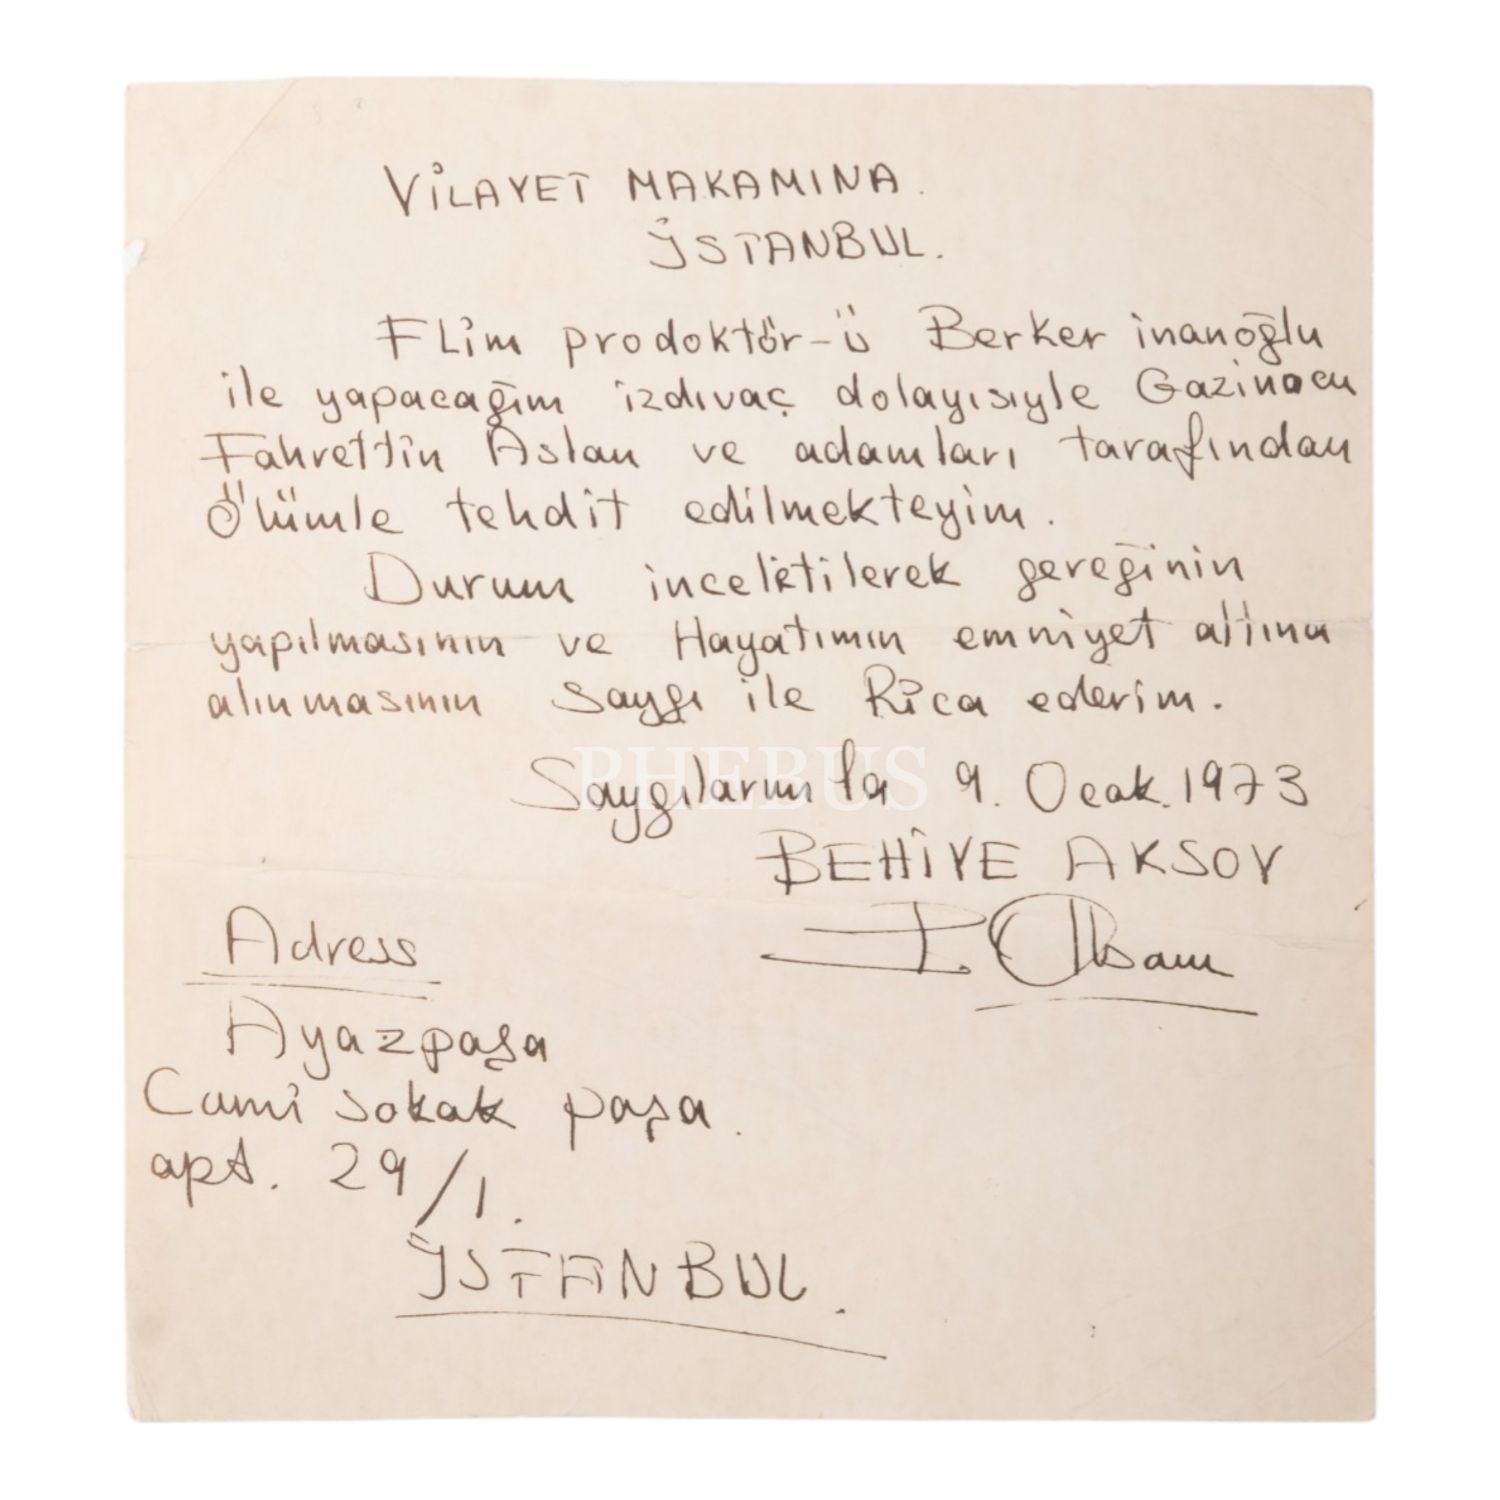 VİLAYET MAKAMINA.
İSTANBUL.
FLim prodoktör-ü Berker inanoğlu
ile yapacağım izdıvaç dolayısıyle Gazinocu
Fahrettin Aslan ve adamları tarafından
Ölümle tehdit edilmekteyim.
Durum inceletilerek gereğinin
yapılmasının ve Hayatımın emniyet altına
alınmasının saygı ile Rica ederim.
PHEBUS
Saygılarımla 9. Ocak.1973
BEHİYE AKSOY
Adress
Ayazpaşa
Cami sokak paşa.
apt. 29/1.
İSTANBUL.